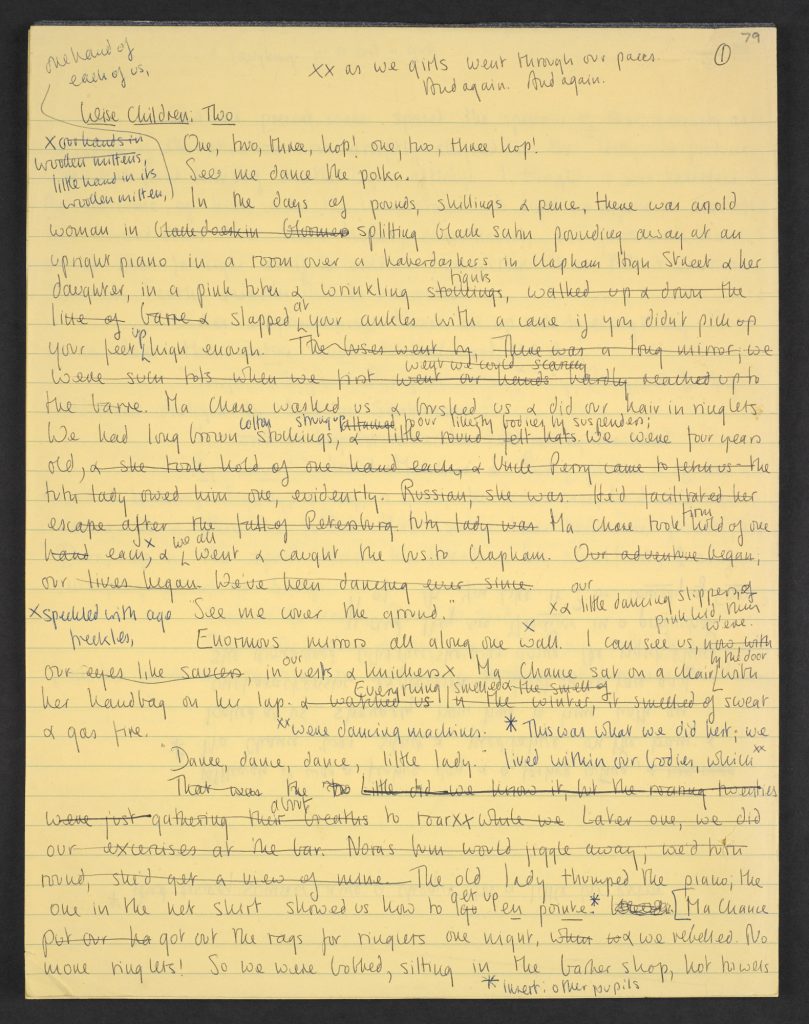 79
①
one hand of
each of us,
xx as we girls went through our paces.
And again. And again.
Wise Children: Two
x our hands in
woollen mittens,
little hand in its
woollen mitten,
One, two, three, hop! one, two, three hop!
See me dance the polka.
In the days of pounds, shillings & pence, there was an old
woman in black doeskin bloomers splitting black satin pounding away at an
upright piano in a room over a haberdashers in Clapham High Street & her
tights
daughter, in a pink tutu & wrinkling stockings, walked up & down the
line of barre & slapped at your ankles with a cane if you didnt pick up
your feet up high enough. The buses went by, There was a long mirror; we
went we could scarcely
were such tots when we first went our hands hardly reached up to
the barre. Ma Chance washed us & brushed us & did our hair in ringlets
cotton strung up attached to our liberty bodices by suspenders;
We had long brown stockings, & little round felt hats. We were four years
old, & she took hold of one hand each, & Uncle Perry came to fetch us - the
tutu lady owed him one, evidently. Russian, she was. He'd facilitated her
firm
escape after the fall of Petersburg tutu lady was Ma Chance took hold of one
hand each, x & we all went & caught the bus to Clapham. Our adventure began;
our lives began. We've been dancing ever since.
x speckled with age
freckles,
"See me cover the ground."
x & our little dancing slippers, of
pink kid, thin
were.
Enormous mirrors all along one wall. x I can see us, now, with
our eyes like saucers, in our vests & knickers x Ma Chance sat on a chair by the door with
Everything smelled & the smell of
her handbag on her lap. & watched us in the winter, it smelled of sweat
& gas fire.
xx were dancing machines. * This was what we did best; we
"Dance, dance, dance, little lady." lived within our bodies, which xx
That was the Little did we know it, but the roaring twenties
about
were just gathering their breaths to roar xx while we Later one, we did
our excercises at the bar. Noras bum would jiggle away; we'd turn
round, she'd get a view of mine. The old lady thumped the piano; the
one in the net skirt showed us how to go get up en pointe. * [Ma Chance
put our ha got out the rags for ringlets one night, when to & we rebelled. No
more ringlets! So we were bobbed, sitting in the barber shop, hot towels
* insert: other pupils